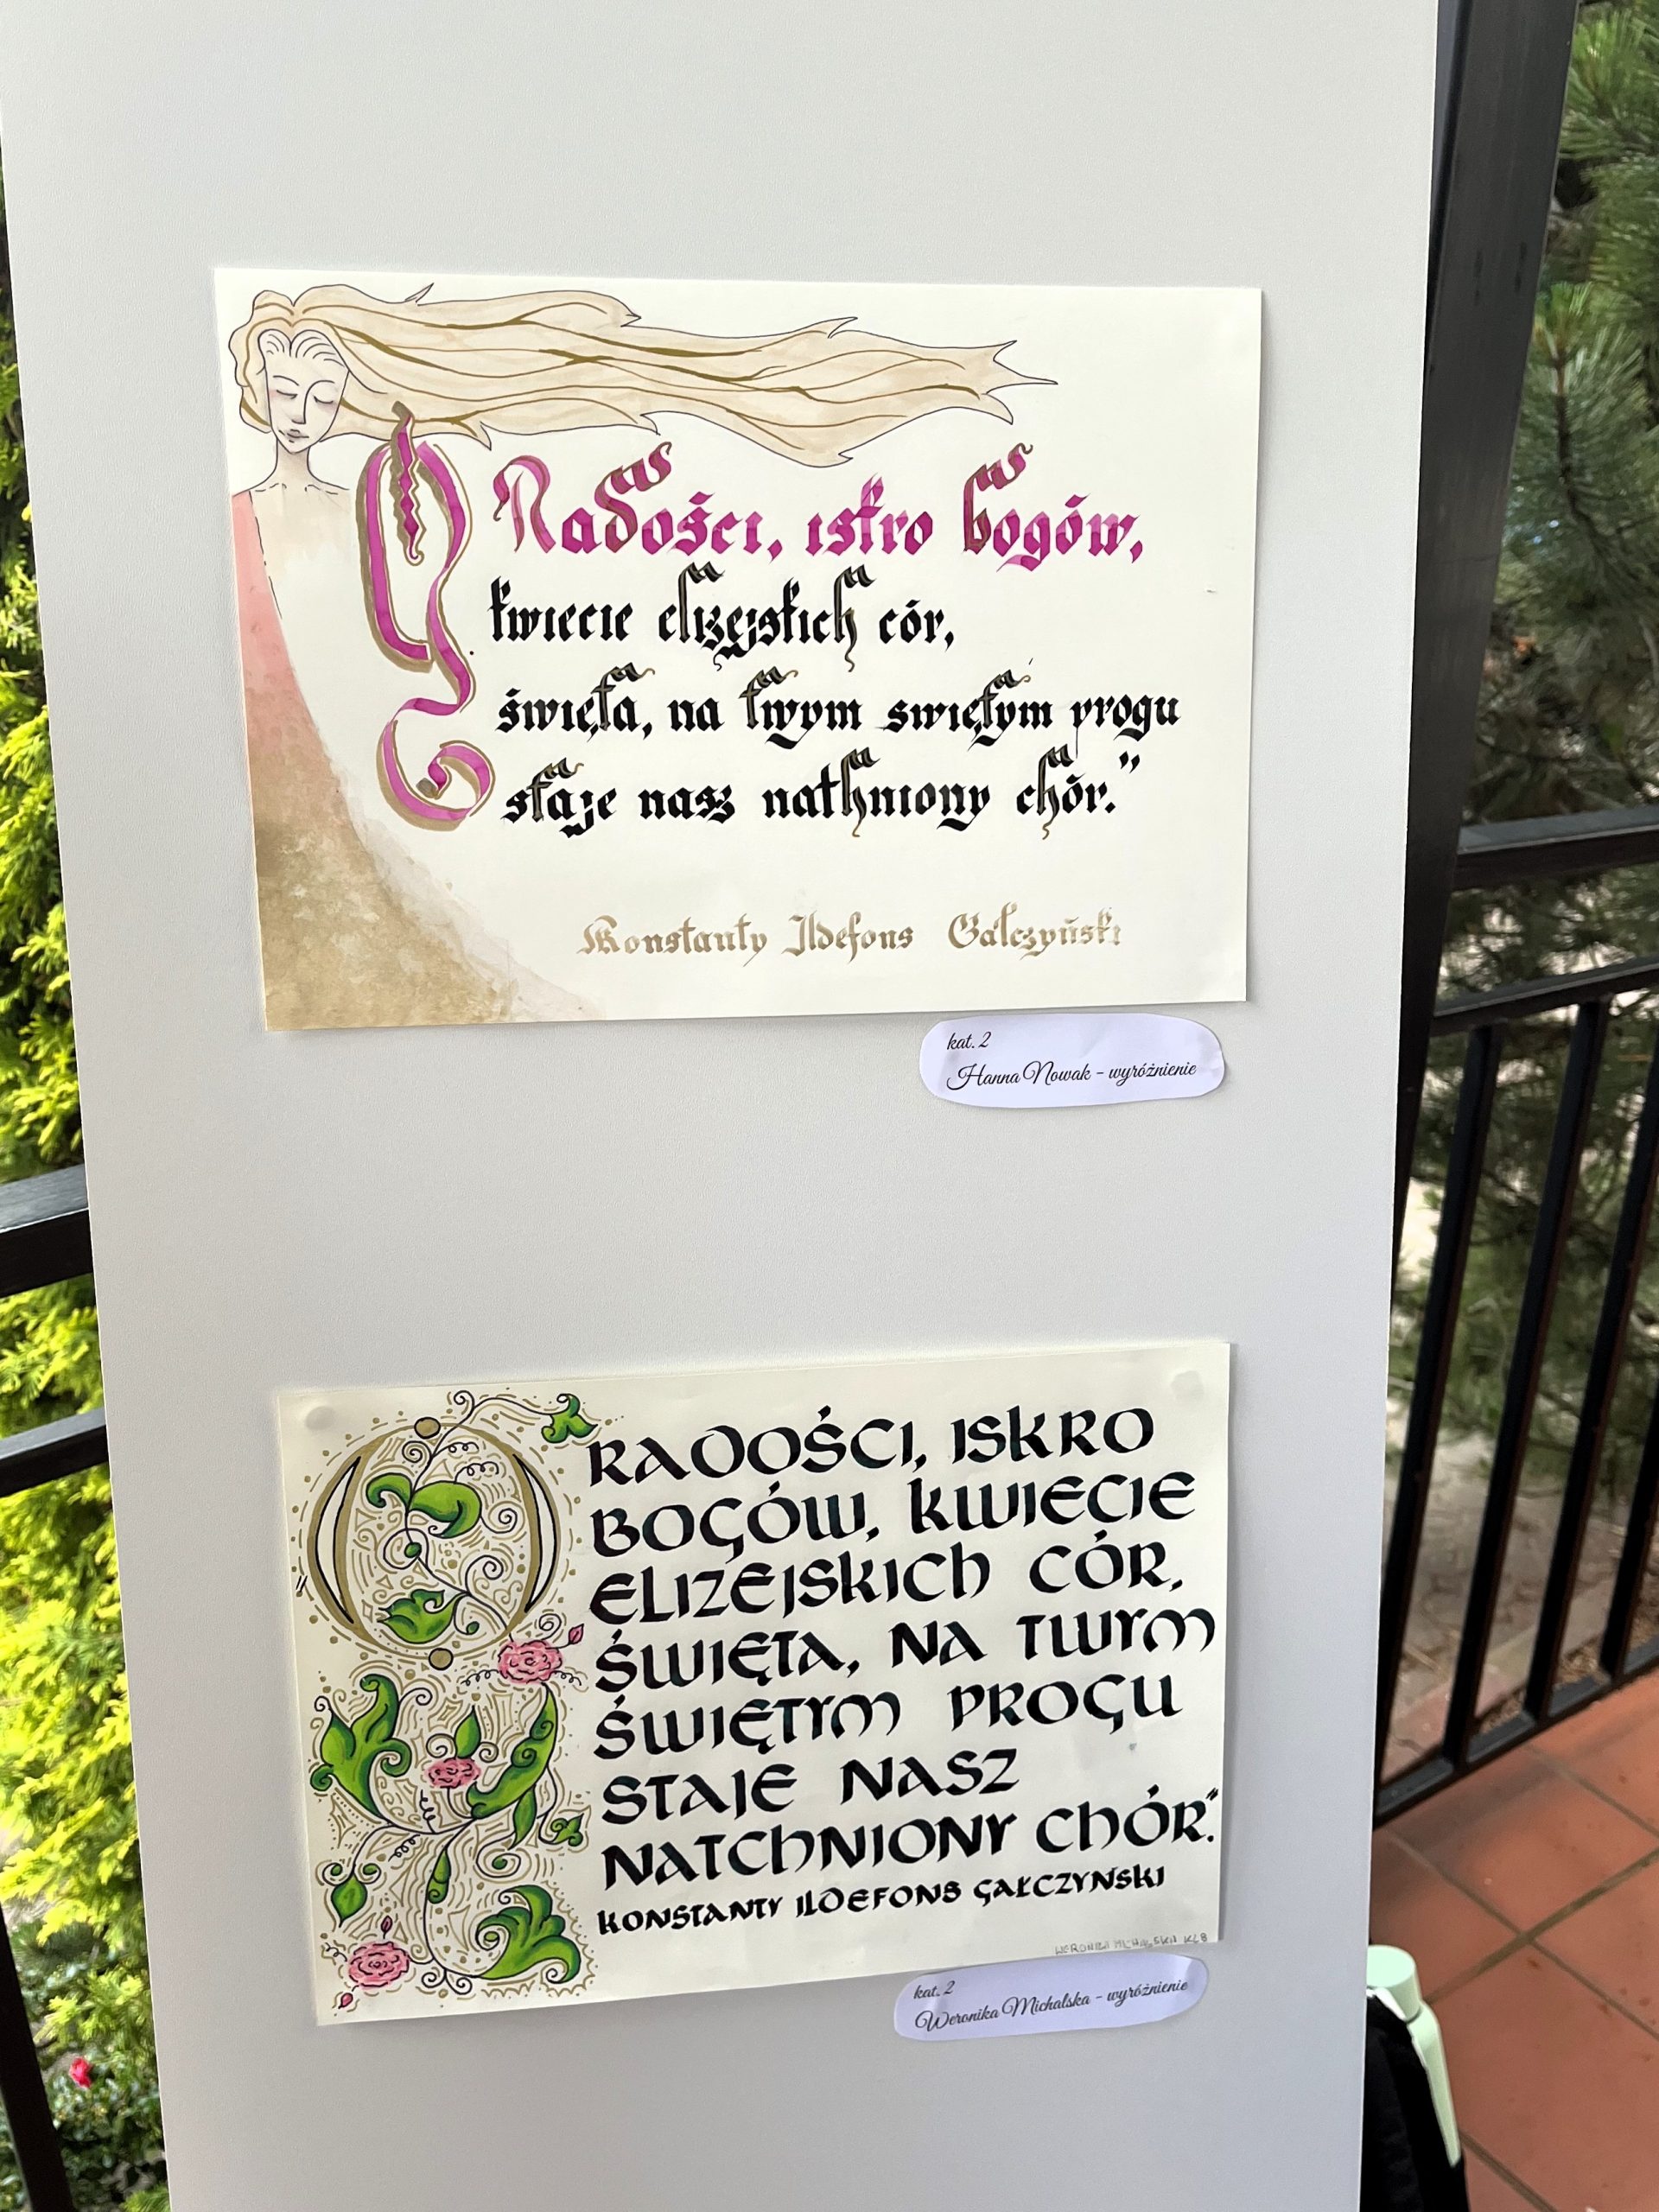 O Radości, iskro bogów,
kwiecie elizejskich cór,
święta, na twym swiętym progu
staje nasz nathniony chór."
Konstanty Ildefons Gałczyński
kat. 2
Hanna Nowak - wyróżnienie
"O RADOŚCI, ISKRO
BOGÓW, KWIECIE
ELIZEJSKICH CÓR,
ŚWIĘTA, NA TWYM
ŚWIĘTYM PROGU
STAJE NASZ
NATCHNIONY CHÓR."
KONSTANTY ILDEFONS GAŁCZYŃSKI
WERONIKA MICHALSKA KL 8
kat. 2
Weronika Michalska - wyróżnienie